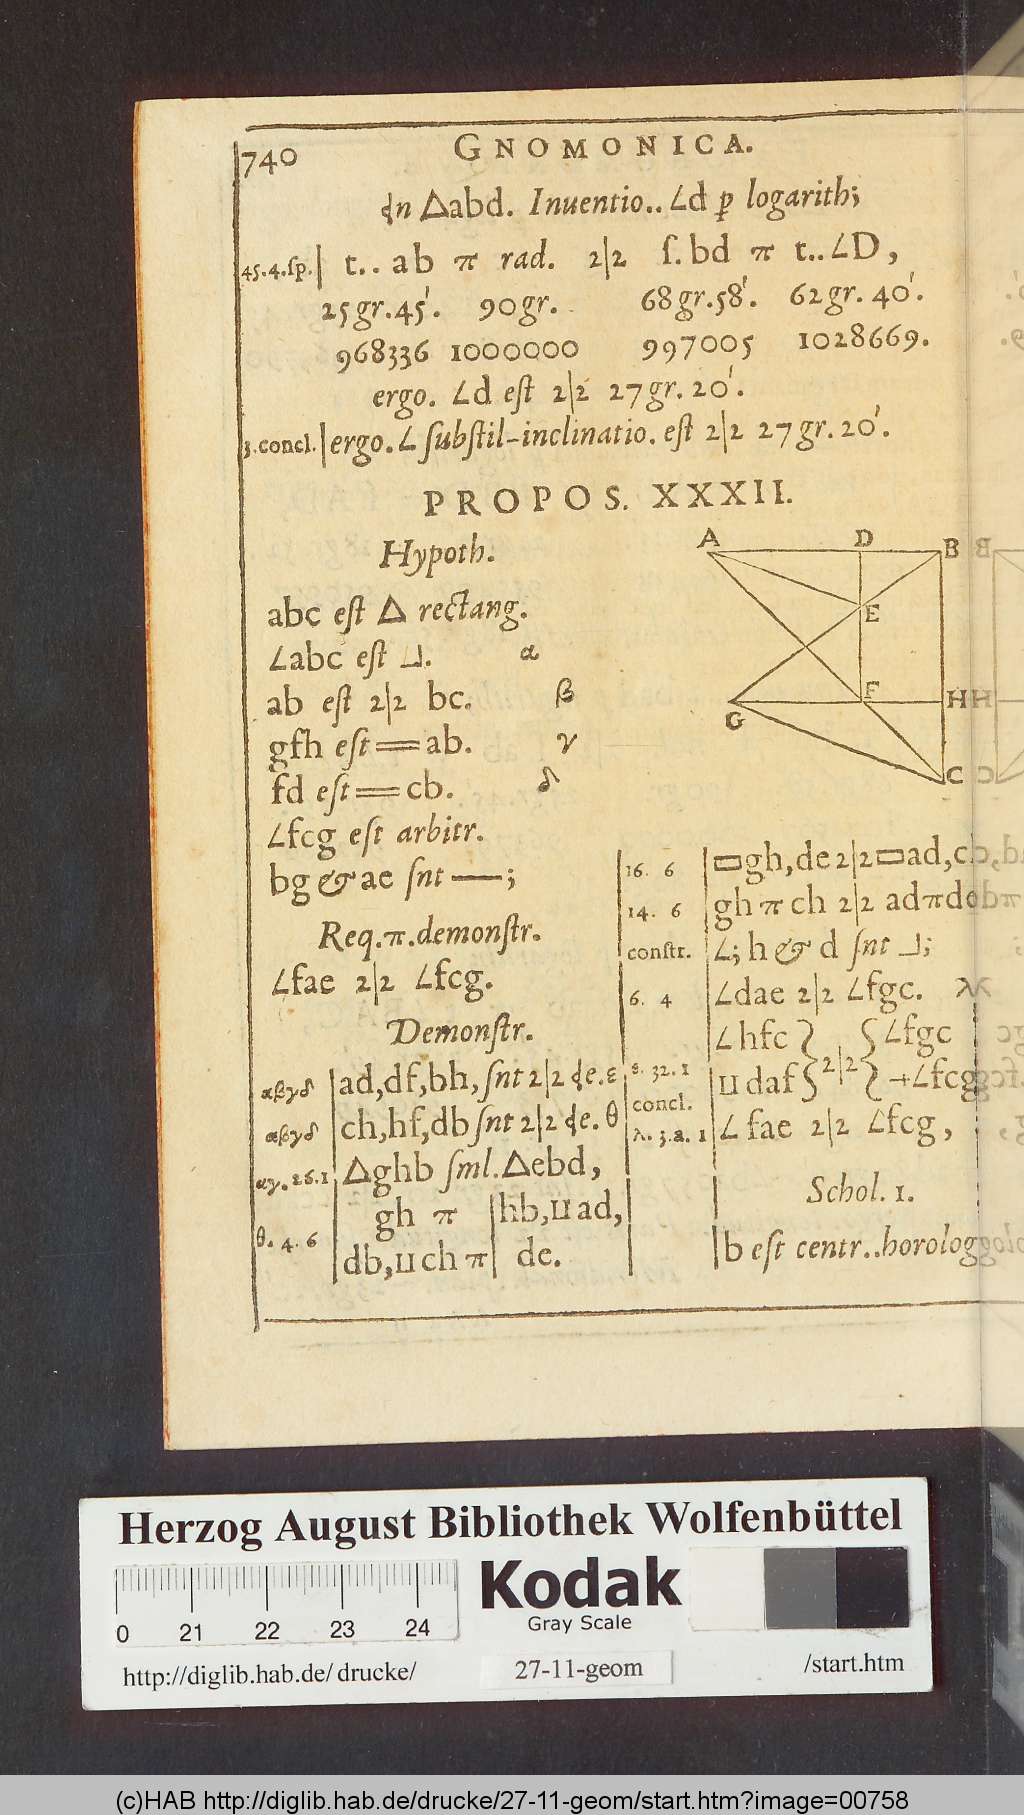 740
GNOMONICA.
In △abd. Inuentio.. ∠d p logarith;
45.4.sp.| t.. ab π rad. 2|2 ſ.bd π t..∠D,
25gr.45'. 90gr. 68gr.58'. 62gr.40'.
968336 1000000 997005 1028669.
ergo. ∠d eſt 2|2 27gr.20'.
3.concl.| ergo.∠ ſubſtil-inclinatio. eſt 2|2 27gr.20'.
PROPOS. XXXII.
Hypoth.
abc eſt △ rectang.
∠abc eſt ⅃. α
ab eſt 2|2 bc. β
gfh eſt == ab. γ
fd eſt == cb. δ
∠fcg eſt arbitr.
bg & ae ſnt —;
Req.π.demonſtr.
∠fae 2|2 ∠fcg.
Demonſtr.
αβγδ | ad,df,bh, ſnt 2|2 de.ε
αβγδ | ch,hf,db ſnt 2|2 de. θ
αγ.26.1 | △ghb ſml.△ebd,
θ. 4. 6 | gh π | hb,⊔ad,
db,⊔ch π | de.
A D B
E
F H
G
C
16. 6 | ▭gh,de 2|2 ▭ad,ch,
14. 6 | gh π ch 2|2 ad π de
conſtr. | ∠; h & d ſnt ⅃;
6. 4 | ∠dae 2|2 ∠fgc. λ
∠hfc } { ∠fgc
s. 32. 1 | ⊔daf } 2|2 { +∠fcg
concl.
λ. 3.a. 1 | ∠fae 2|2 ∠fcg,
Schol. 1.
b eſt centr..horolog
Herzog August Bibliothek Wolfenbüttel
0 21 22 23 24
Kodak
Gray Scale
http://diglib.hab.de/drucke/ 27-11-geom /start.htm
(c)HAB http://diglib.hab.de/drucke/27-11-geom/start.htm?image=00758